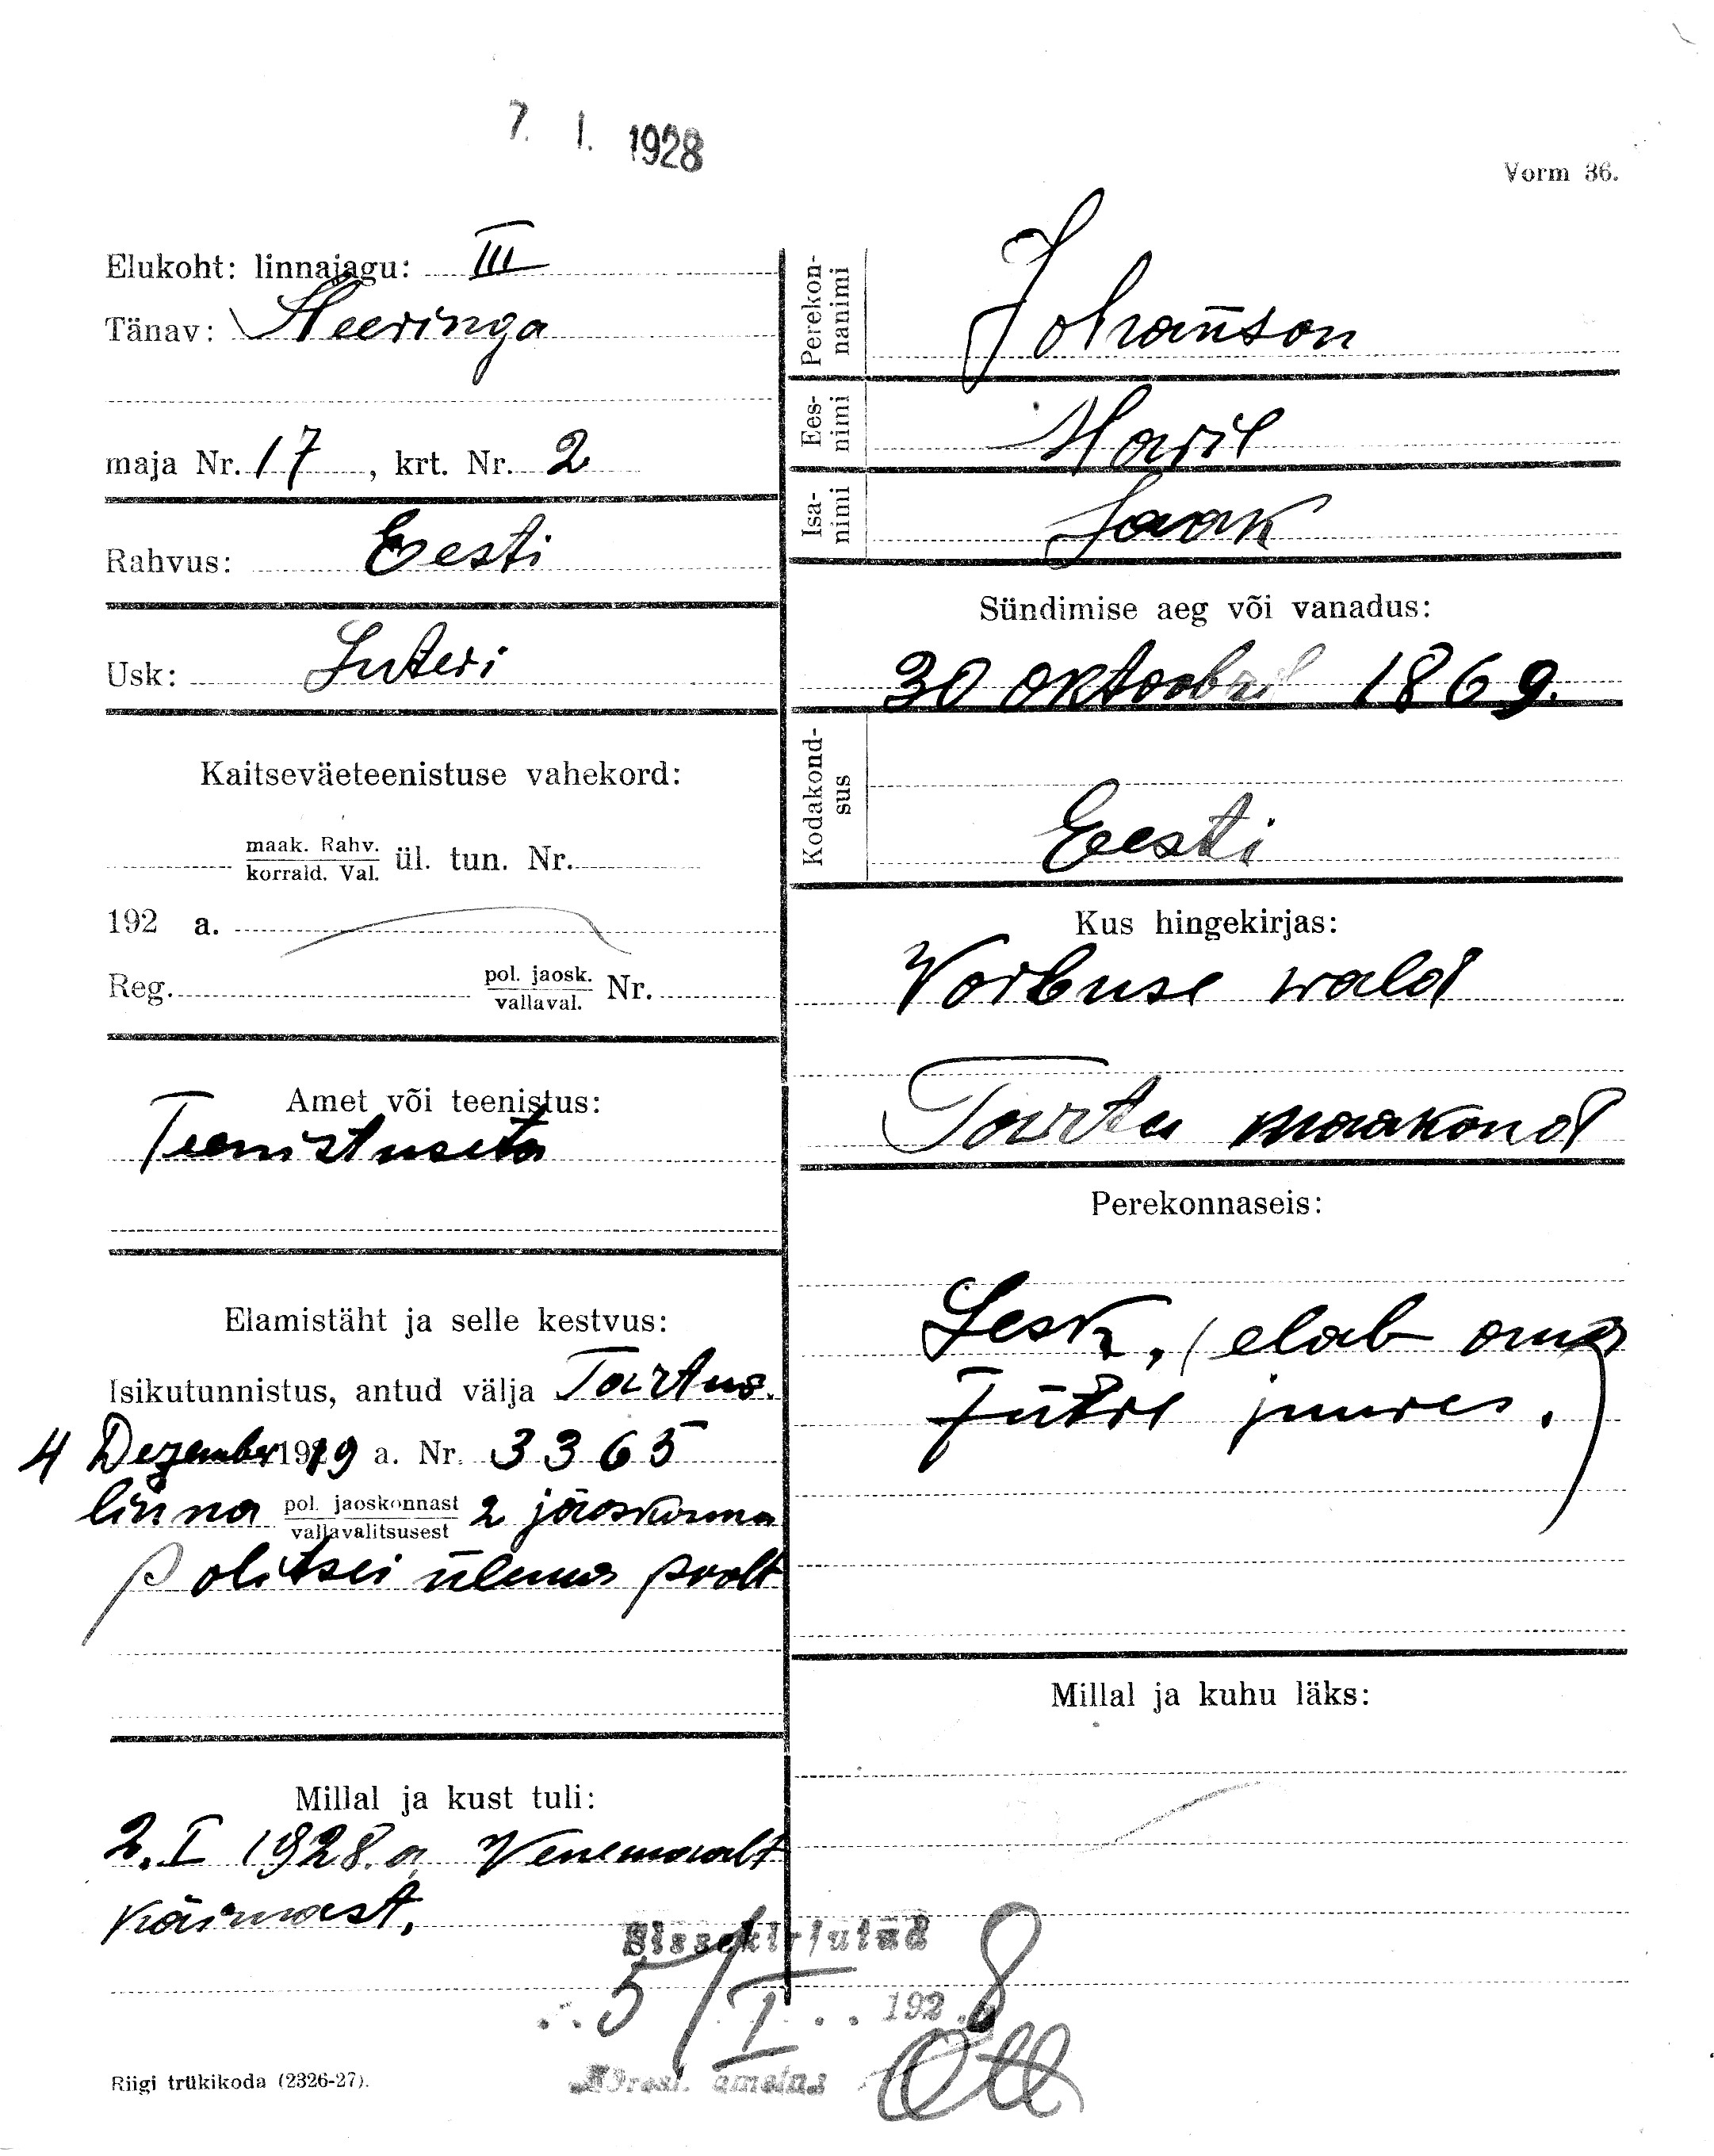 7. I. 1928
Vorm 36.
Elukoht: linnajagu: III
Tänav: Meeringa
maja Nr. 17, krt. Nr. 2
Rahvus: Eesti
Usk: Luteri
Kaitseväeteenistuse vahekord:
maak. Rahv.
korrald. Val. ül. tun. Nr.
192 a.
Reg. pol. jaosk. Nr.
vallaval.
Amet või teenistus:
Teenistuseta
Elamistäht ja selle kestvus:
Isikutunnistus, antud välja Tartus.
4 Dezember 1919 a. Nr. 3365
linna pol. jaoskonnast 2 jäoskonna
vallavalitsusest
politsei ülema poolt
Millal ja kust tuli:
2. I 1928. a Venemaalt
käimast.
Perekon-
nanimi Johan̄son
Ees-
nimi
Isa-
nimi Jaak
Sündimise aeg või vanadus:
30 oktoobril 1869.
Kodakond-
sus Eesti
Kus hingekirjas:
Vorbuse wald
Tartu maakond
Perekonnaseis:
Lesk, (elab oma
Tütre juures.)
Millal ja kuhu läks:
Sissekirjutud
5/I 1928
Riigi trükikoda (2326-27).